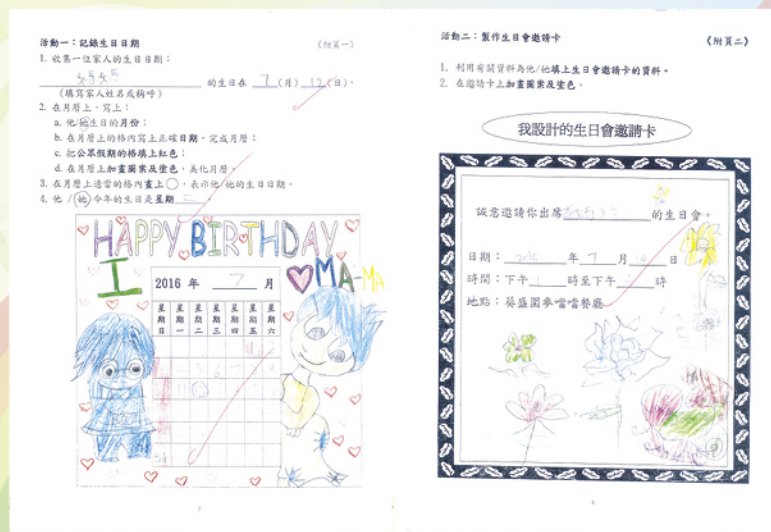 活動一：記錄生日日期
（附頁一）
1. 收集一位家人的生日日期：
媽媽 的生日在 7 (月) 12 (日)。
（填寫家人姓名或稱呼）
2. 在月曆上，寫上：
a. 他/她生日的月份；
b. 在月曆上的格內寫上正確日期，完成月曆；
c. 把公眾假期的格填上紅色；
d. 在月曆上加畫圖案及塗色，美化月曆。
3. 在月曆上適當的格內畫上○，表示他/她的生日日期。
4. 他/她今年的生日是星期二
HAPPY BIRTHDAY
I
MA-MA
2016 年 7 月
星期日 星期一 星期二 星期三 星期四 星期五 星期六
31
3
活動二：製作生日會邀請卡
《附頁二》
1. 利用有關資料為他/她填上生日會邀請卡的資料。
2. 在邀請卡上加畫圖案及塗色。
我設計的生日會邀請卡
誠意邀請你出席 的生日會。
日期： 2016 年 7 月 日
時間：下午 1 時至下午 時
地點：葵盛圍麥噹噹餐廳
4